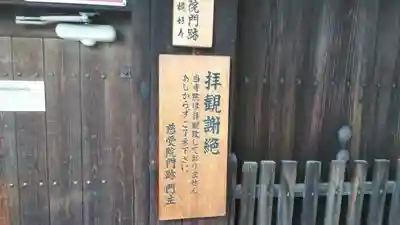 院門跡
拝觀謝絶
当寺院は拝観致しておりません
あしからずご了承下さい。
慈受院門跡門主